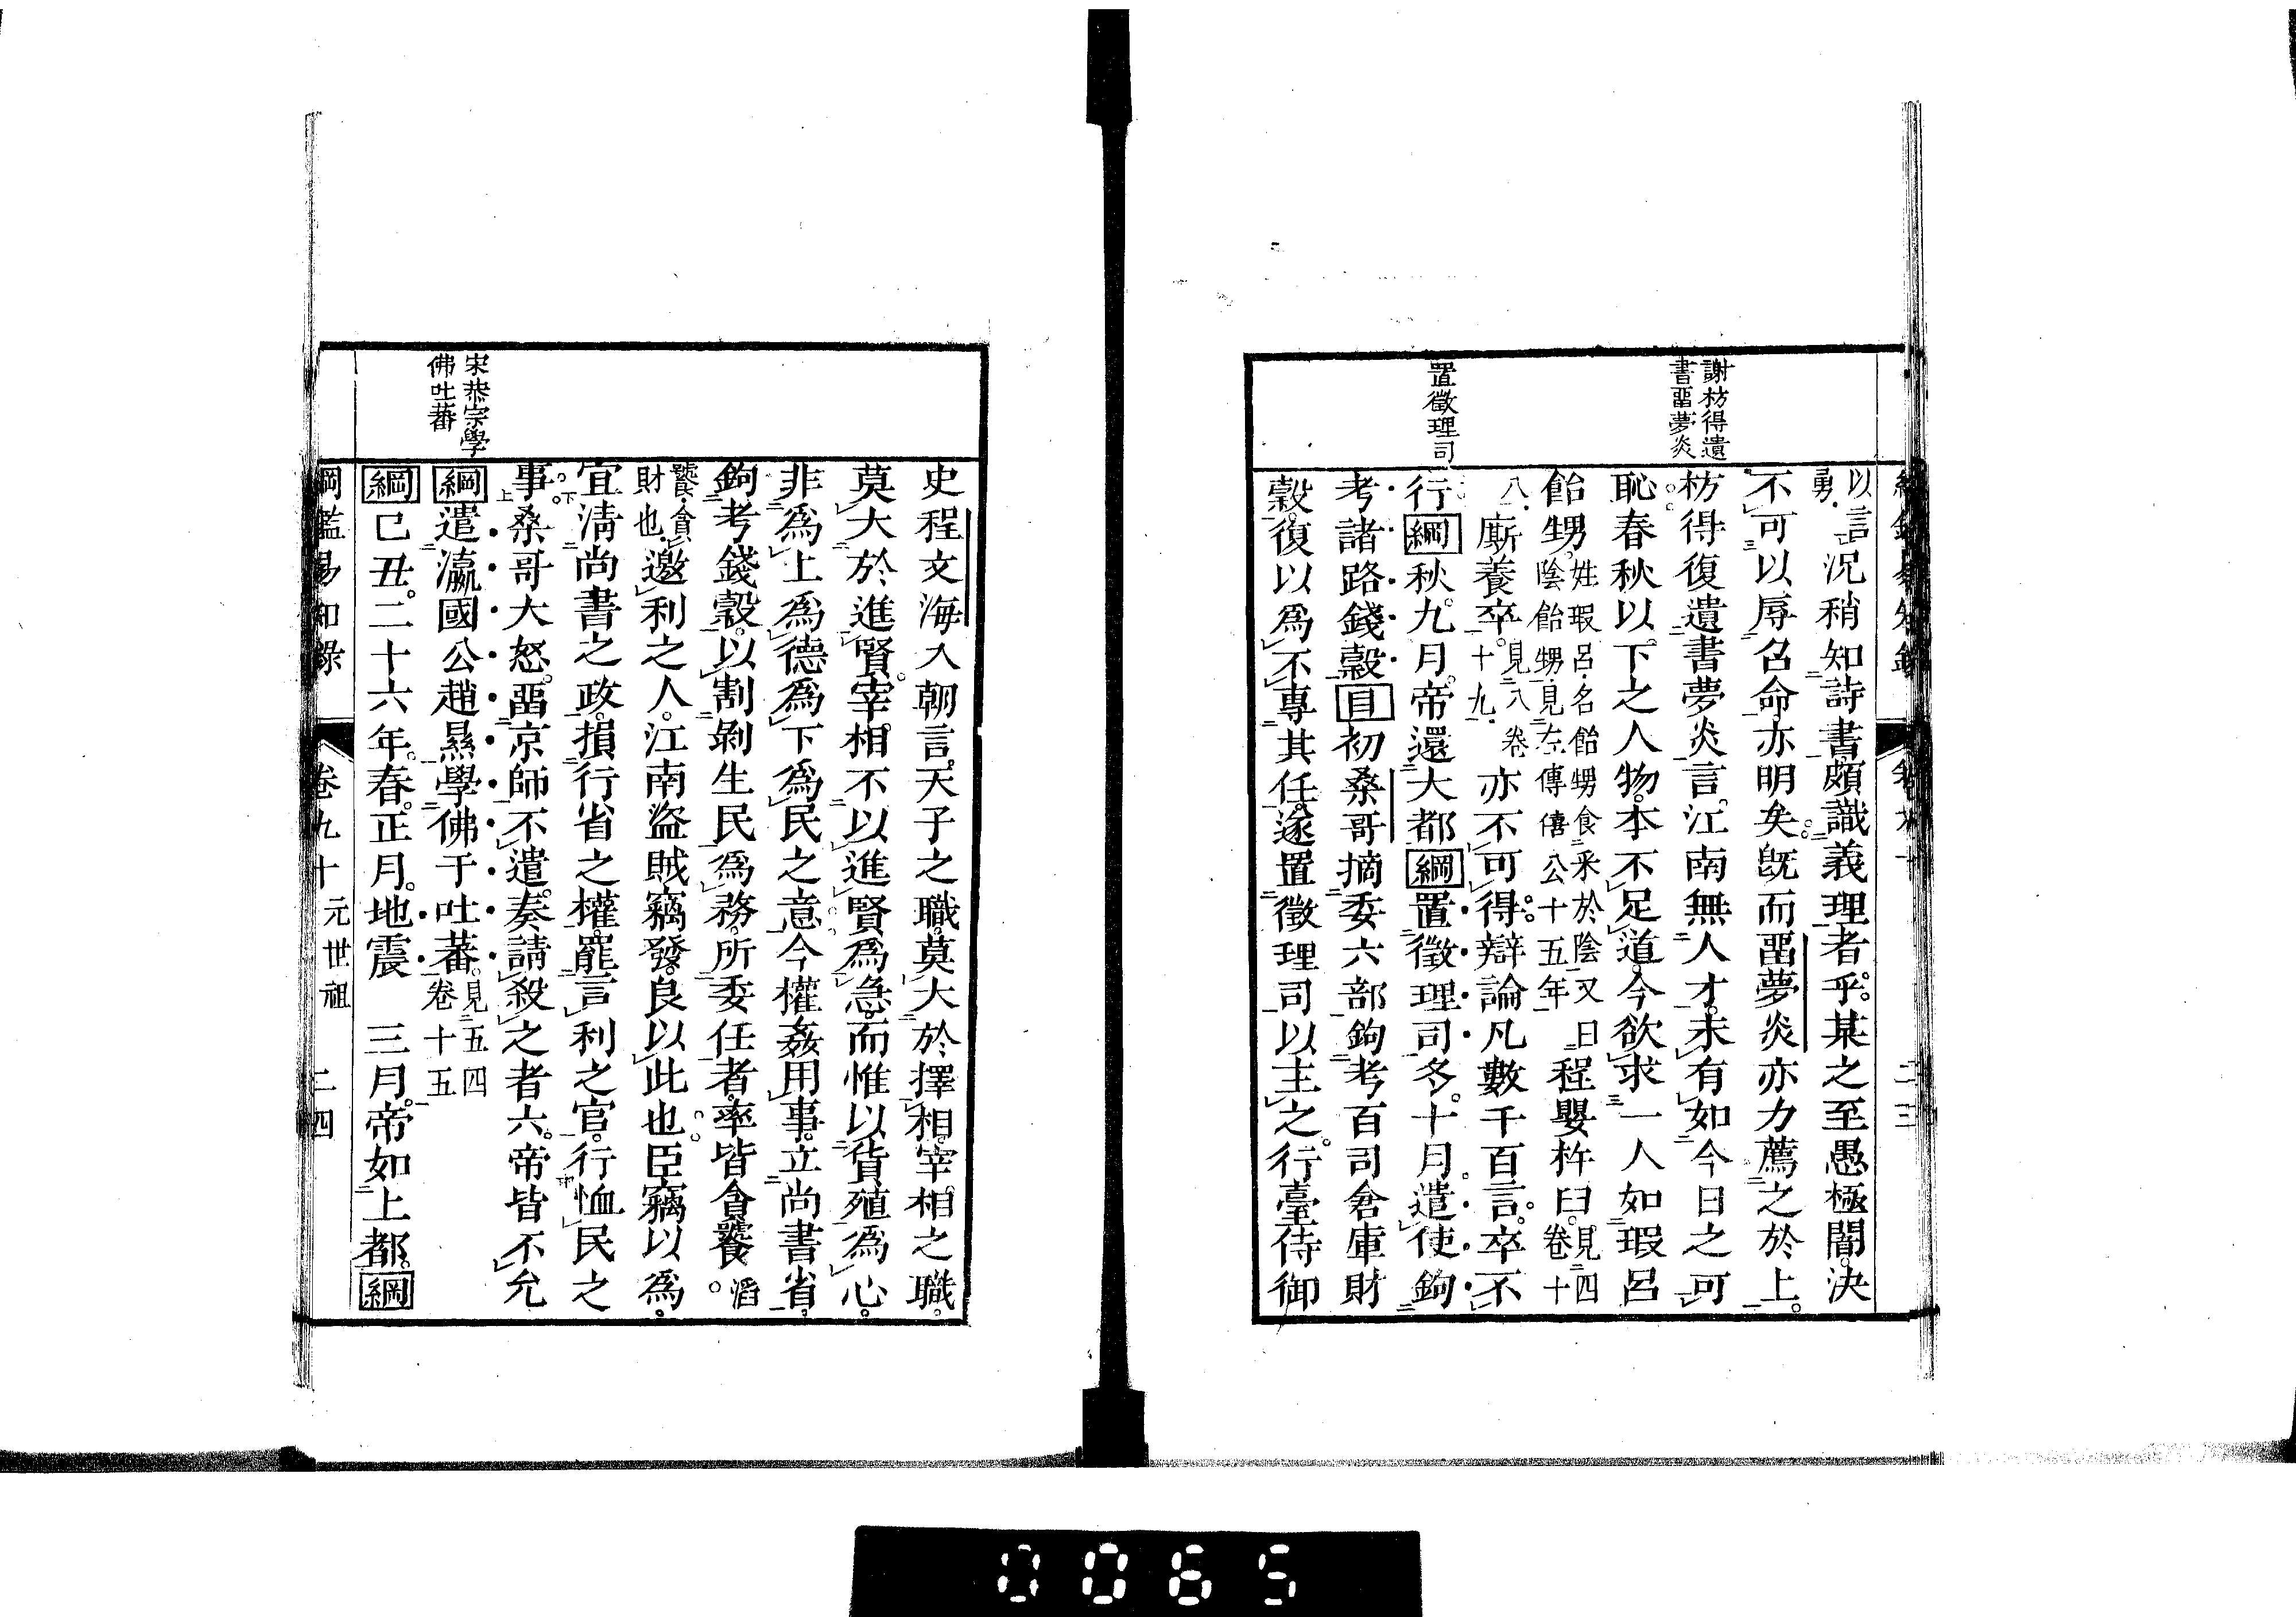 謝枋得遺
書畱夢炎
置徵理司
以言
勇況稍知詩書頗識義理者乎。某之至愚極闇。決
不可以辱召命。亦明矣。旣而畱夢炎亦力薦之於上。
枋得復遺書夢炎言。江南無人才。未有如今日之可
恥。春秋以下之人物。本不足道。今欲求一人如瑕呂
飴甥。姓瑕呂。名飴甥。食采於陰。又曰陰飴甥。見左傳僖公十五年程嬰杵臼。見四卷十
八。廝養卒。見八卷十九。亦不可得。辯論凡數千百言。卒不
行綱秋。九月。帝還大都綱置徵理司冬。十月。遣使鉤
考諸路錢穀目初桑哥摘委六部鉤考百司倉庫財
穀。復以爲不專其任。遂置徵理司以主之。行臺侍御
二三
宋恭宗學
佛吐蕃
史程文海入朝言。天子之職。莫大於擇相。宰相之職。
莫大於進賢。宰相不以進賢爲急。而惟以貨殖爲心。
非爲上爲德爲下爲民之意。今權姦用事。立尚書省。
鉤考錢穀。以割剝生民爲務。所委任者。率皆貪饕。滔。
饕。貪財也。邀利之人。江南盜賊竊發。良以此也。臣竊以爲。
宜淸尚書之政。損行省之權。罷言利之官。行恤民之
事。桑哥大怒。畱京師不遣。奏請殺之者六。帝皆不允
綱遣瀛國公趙㬎學佛于吐蕃。見五四卷十五
綱己丑。二十六年。春。正月。地震 三月。帝如上都。綱
綱鑑易知錄 卷九十 元世祖 二四